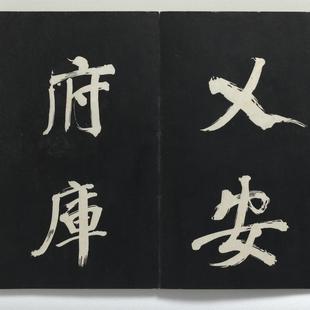 乂安
府庫